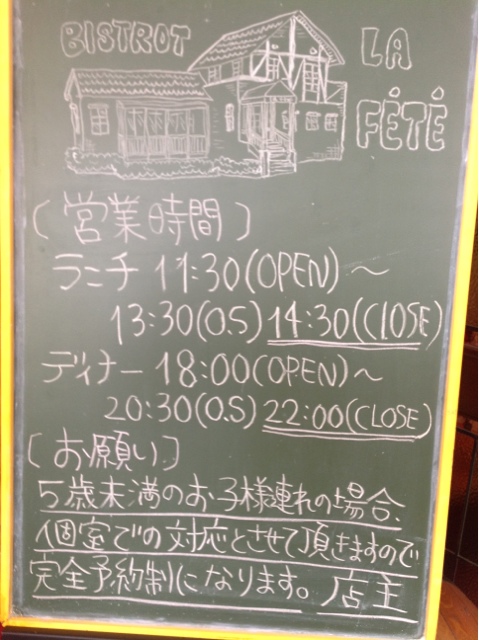 BISTROT LA FÊTÊ
[営業時間]
ランチ 11:30(OPEN)～
13:30(O.S) 14:30(CLOSE)
ディナー 18:00(OPEN)～
20:30(O.S) 22:00(CLOSE)
[お願い]
5歳未満のお子様連れの場合、
個室での対応とさせて頂きますので
完全予約制になります。店主